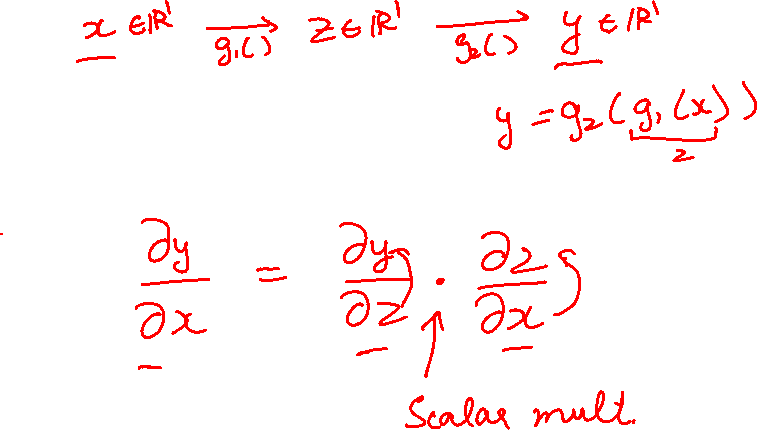 x ∈ ℝ¹ → g₁() z ∈ ℝ¹ → g₂() y ∈ ℝ¹
y = g₂(g₁(x))
z
∂y/∂x = ∂y/∂z · ∂z/∂x
Scalar mult.